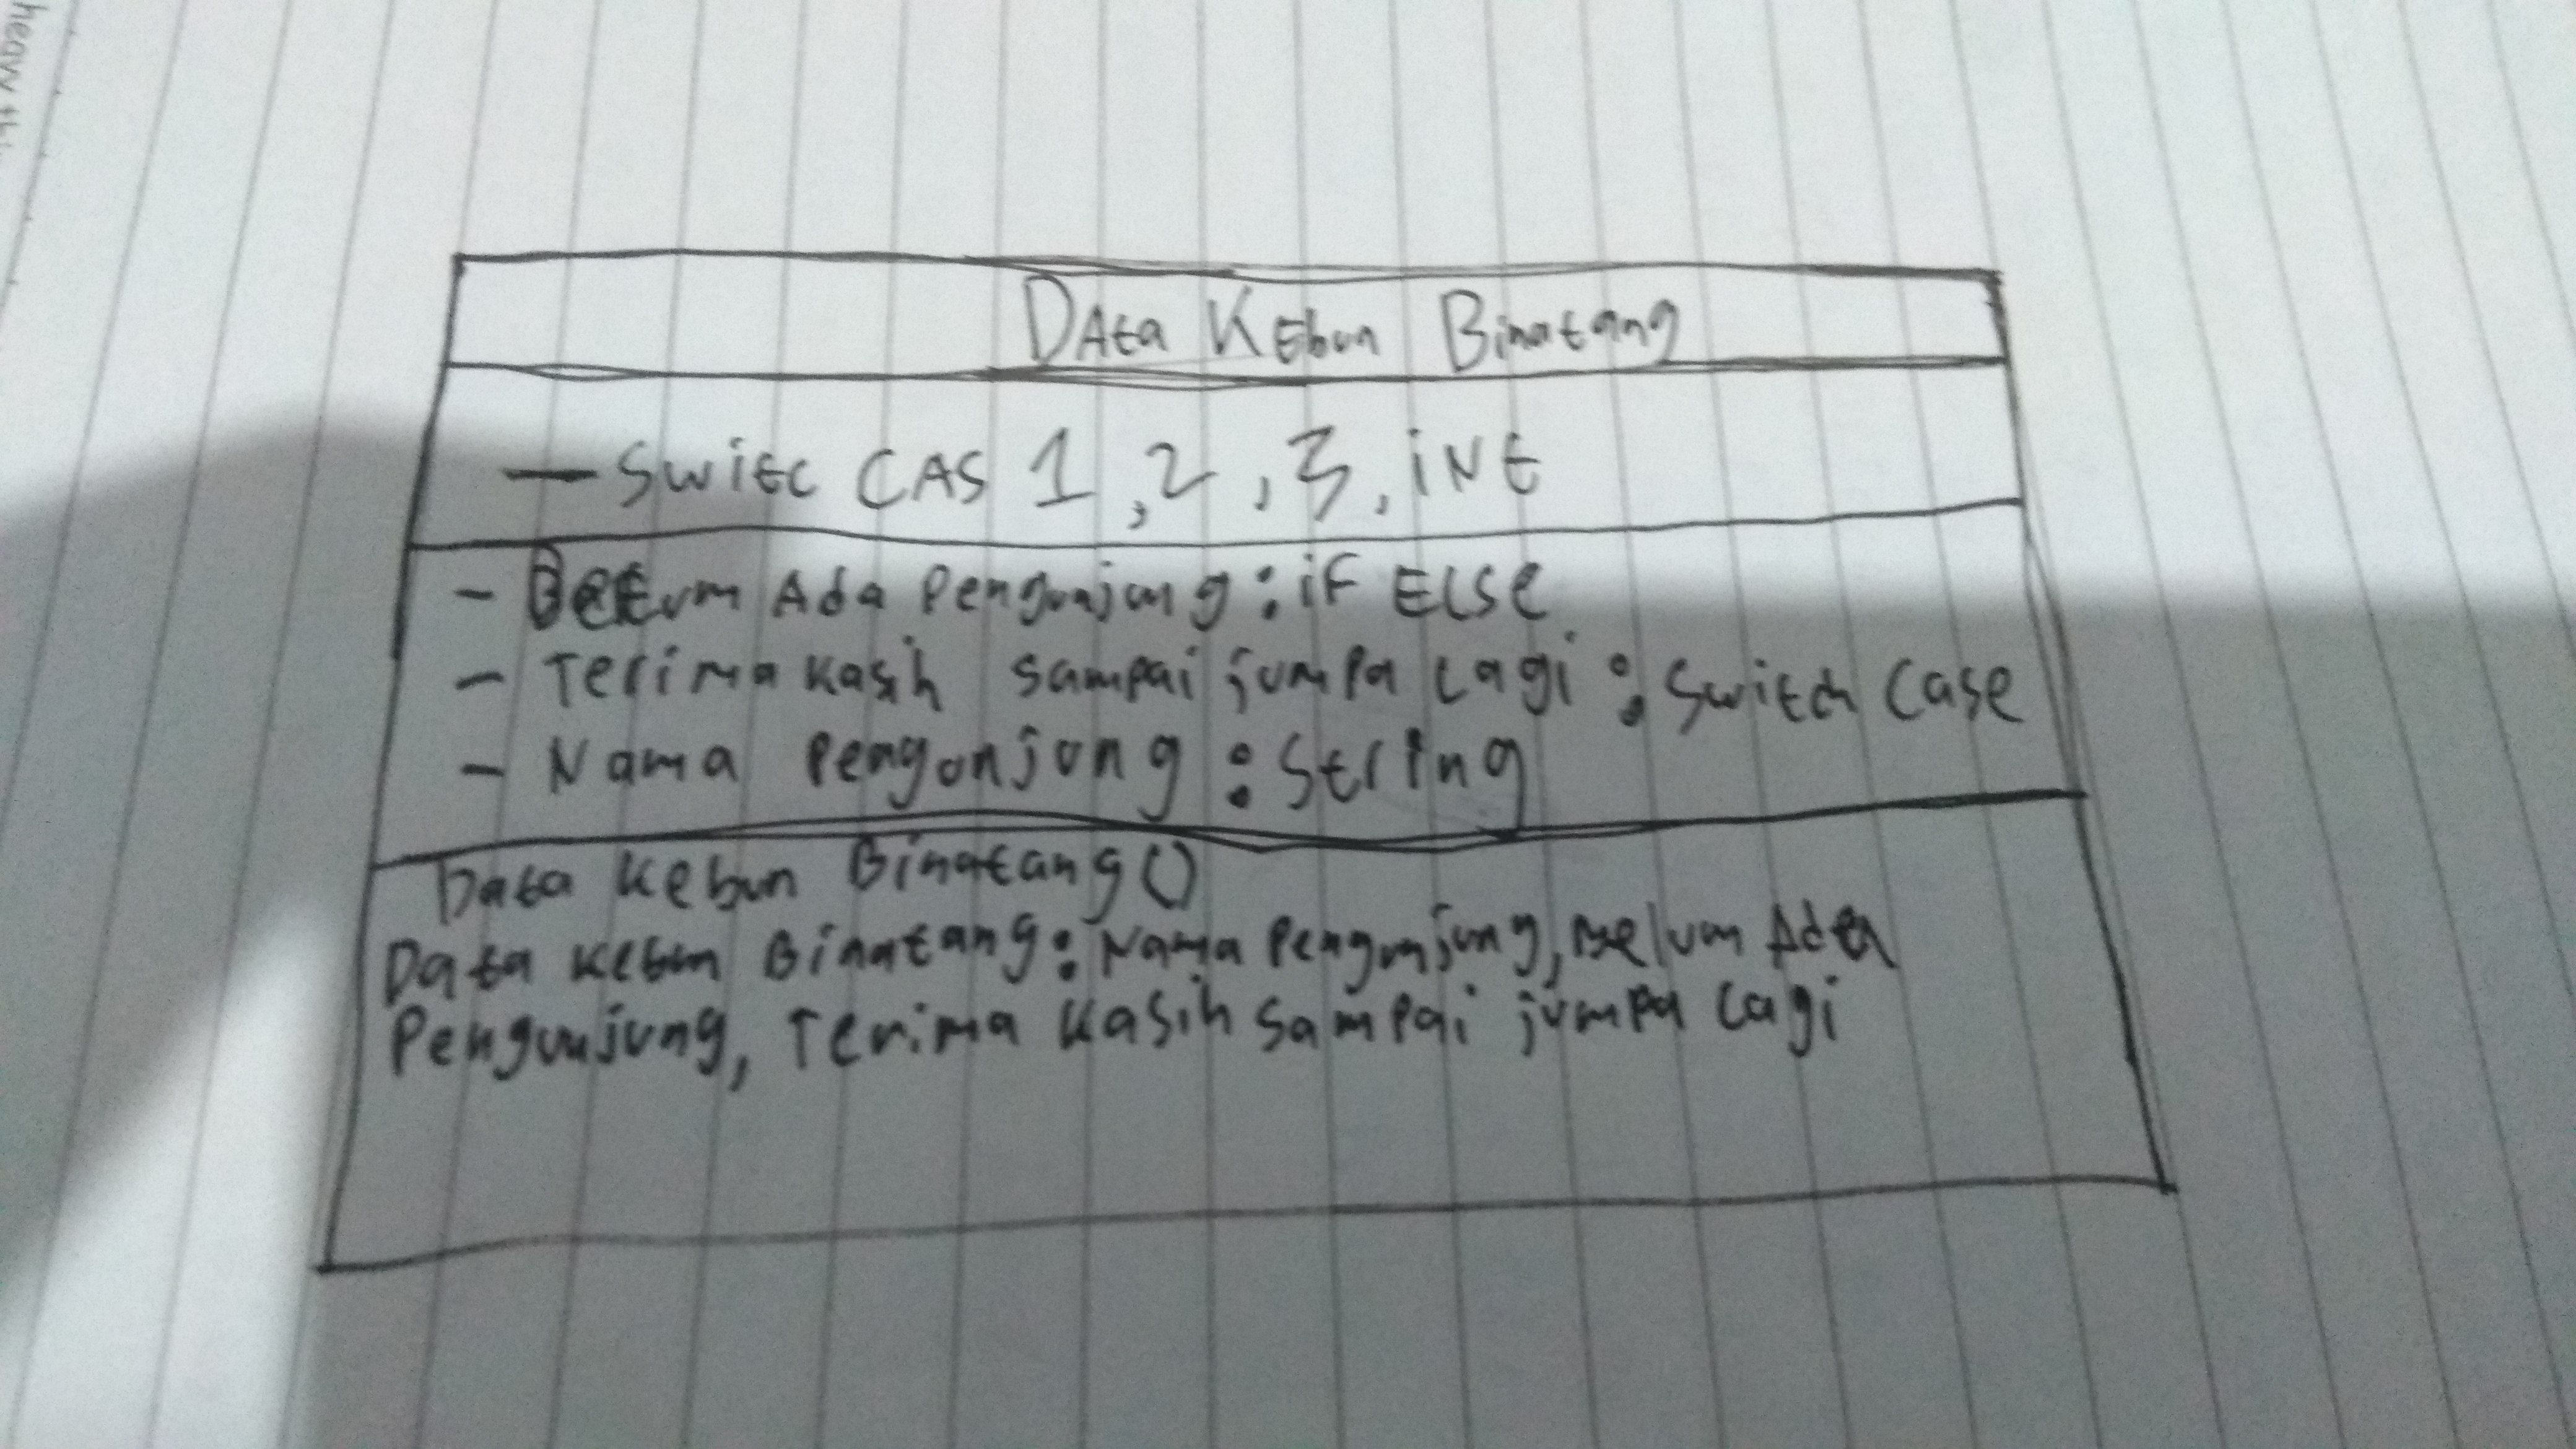 heavy
DAta KEbun Binatang
— Switc CAS 1, 2, 3, iNt
- Belum Ada Pengunjung : iF ELSe
- Terima kasih sampai jumpa Lagi : Switch Case
- Nama Pengunjung : String
Data Kebun Binatang ()
Data Kebun Binatang : Nama Pengunjung, Belum Ada
Pengunjung, Terima Kasih Sampai jumpa Lagi